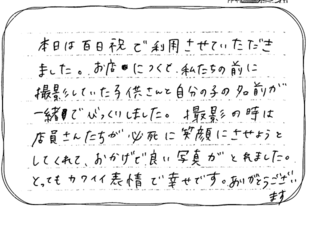 本日は百日祝で利用させていただき
ました。お店につくて、私たちの前に
撮影していた子供さんと自分の子の名前が
一緒でびっくりしました。撮影の時は
店員さんたちが必死に笑顔にさせようと
してくれて、おかげで良い写真がとれました。
とってもカワイイ表情で幸せです。ありがとうござい
ます